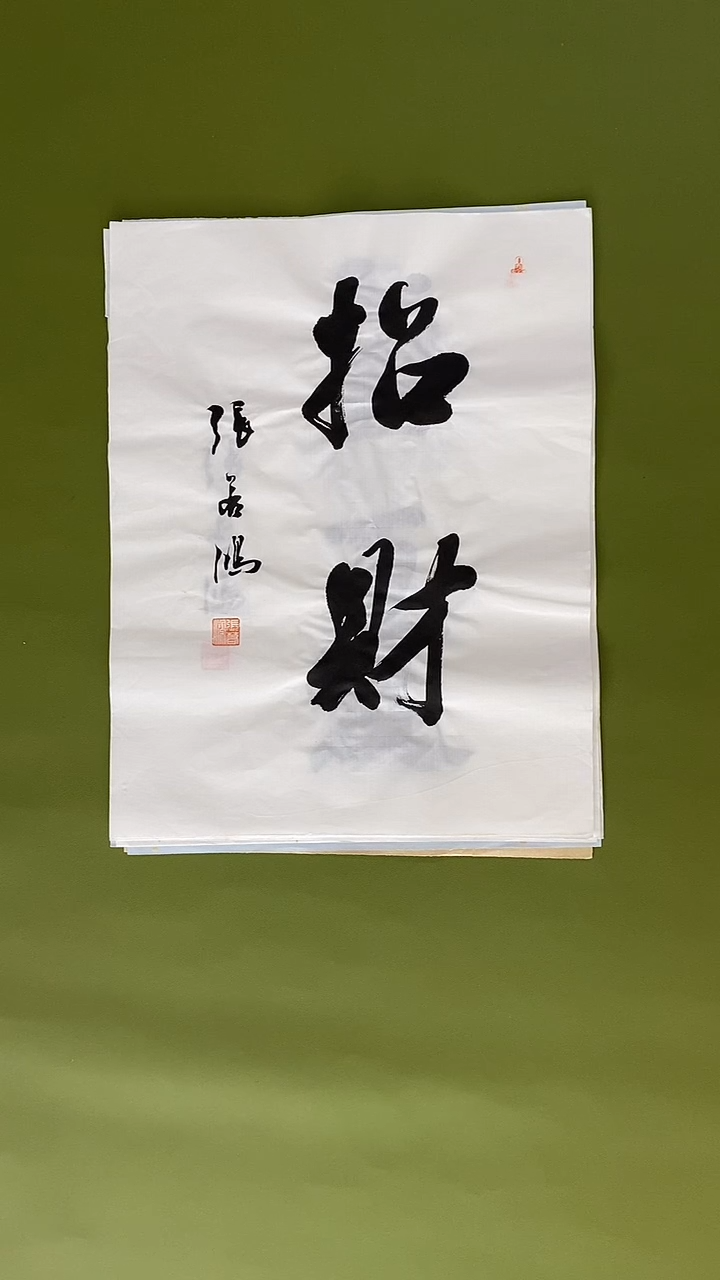 招財
張若鴻